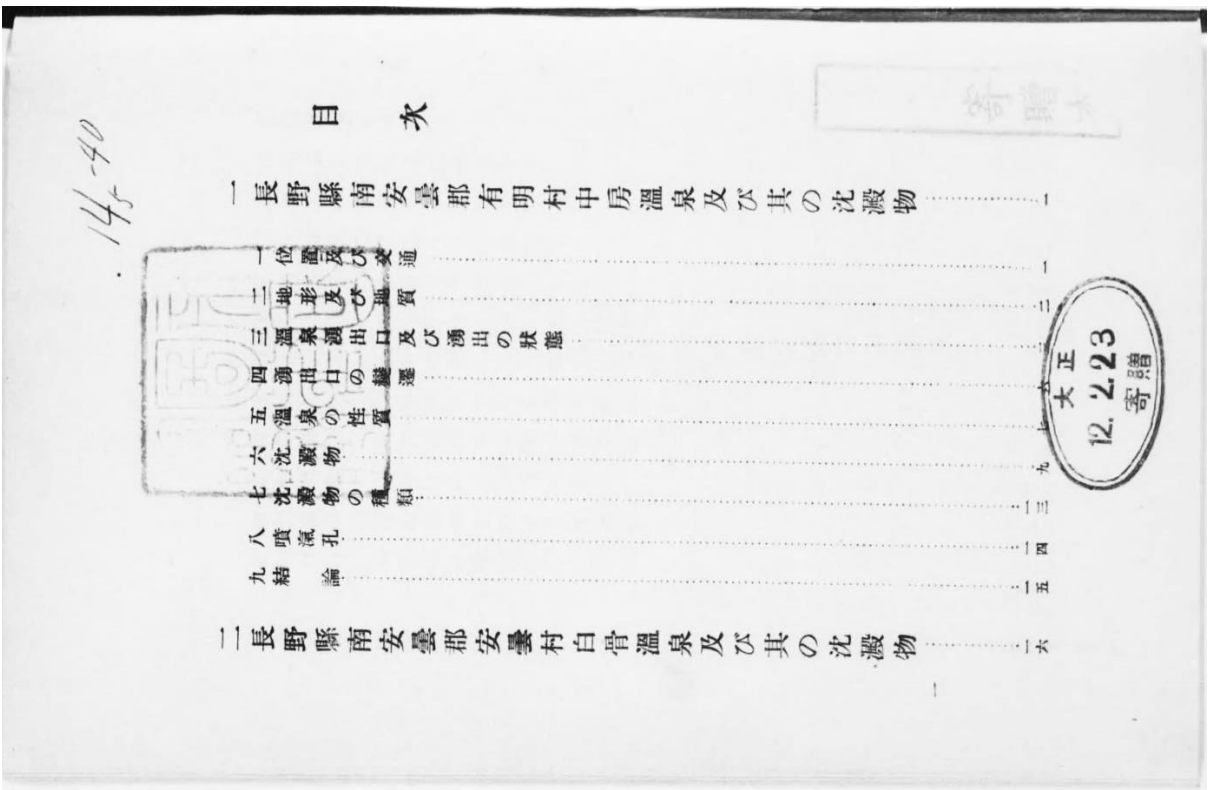 目次
一 長野縣南安曇郡有明村中房溫泉及び其の沈澱物……一
一 位置及び交通……一
二 地形及び地質……二
三 溫泉湧出口及び湧出の狀態
四 湧出口の變遷……六
五 溫泉の性質……七
六 沈澱物……九
七 沈澱物の種類……一三
八 噴氣孔……一四
九 結論……一五
二 長野縣南安曇郡安曇村白骨溫泉及び其の沈澱物……一六
一
大正
12.2.23
寄贈
寄贈本
14.5-40